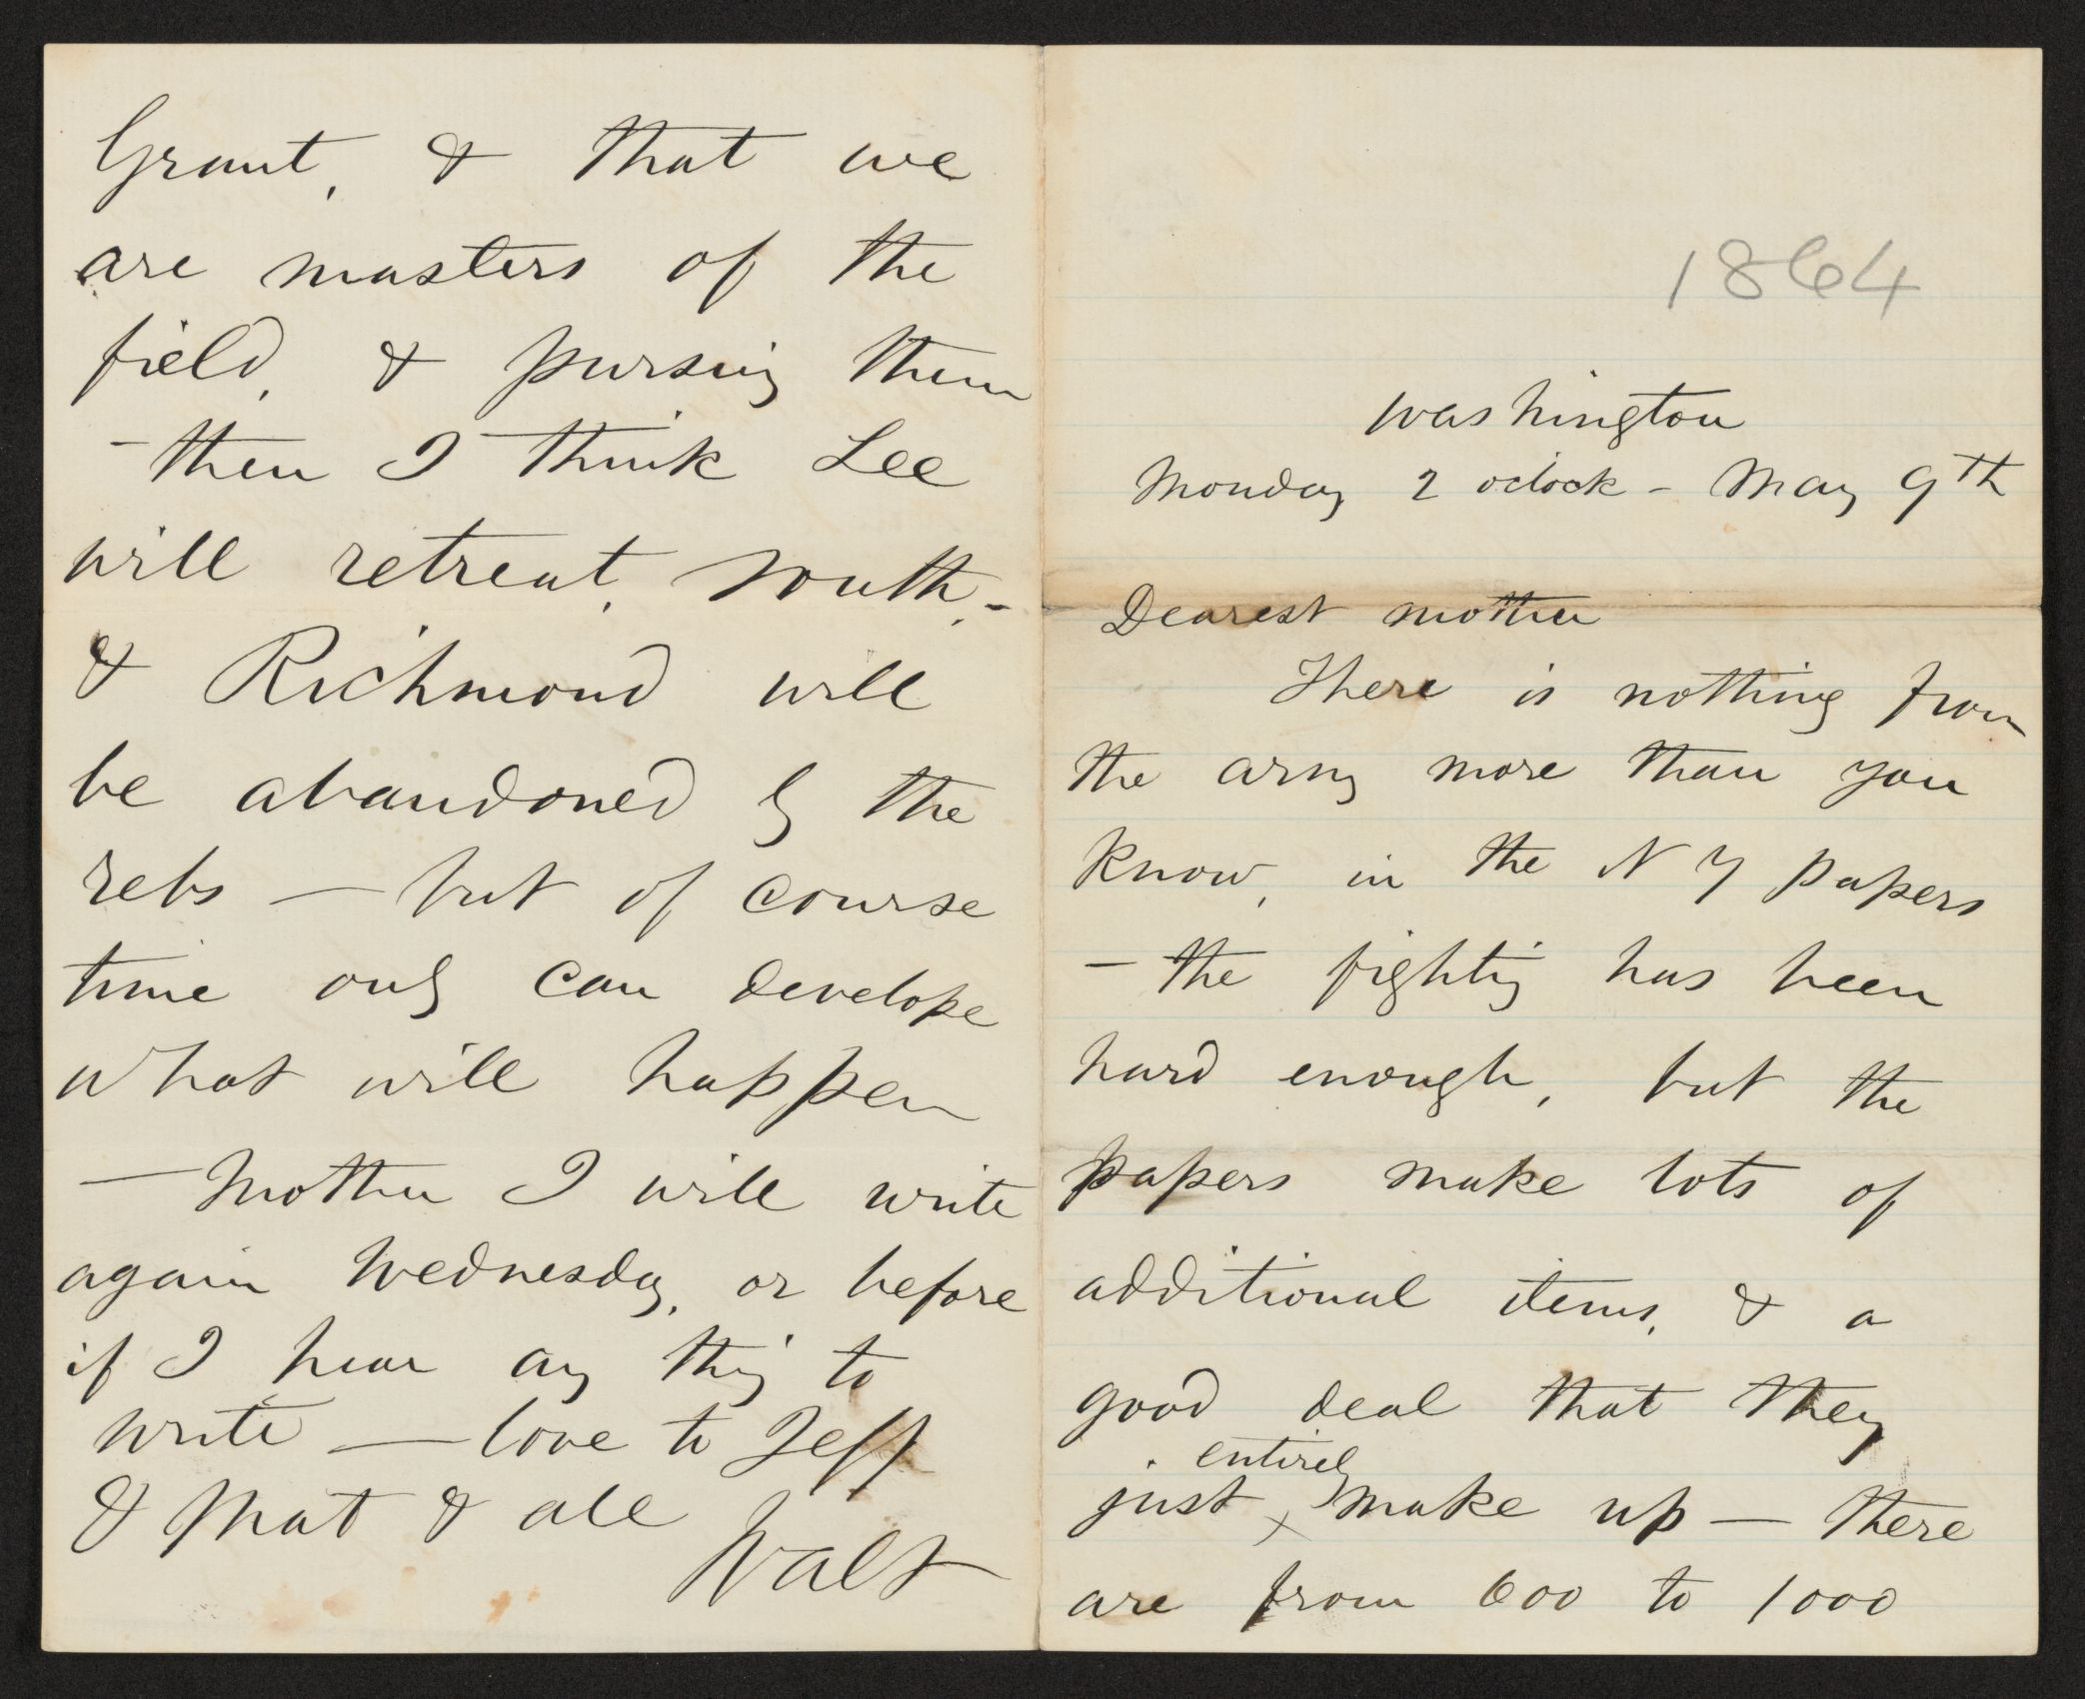 1864
Washington
Monday 2 oclock - May 9th
Dearest mother
There is nothing from
the army more than you
know, in the N Y papers
- the fighting has been
hard enough, but the
papers make lots of
additional items, & a
good deal that they
just entirely make up — there
are from 600 to 1000
Grant, & that we
are masters of the
field, & pursuing them
- then I think Lee
will retreat, south, -
& Richmond will
be abandoned by the
rebs — but of course
time only can develope
what will happen
— Mother I will write
again Wednesday, or before
if I hear any thing to
write — love to Jeff
& Mat & all
Walt